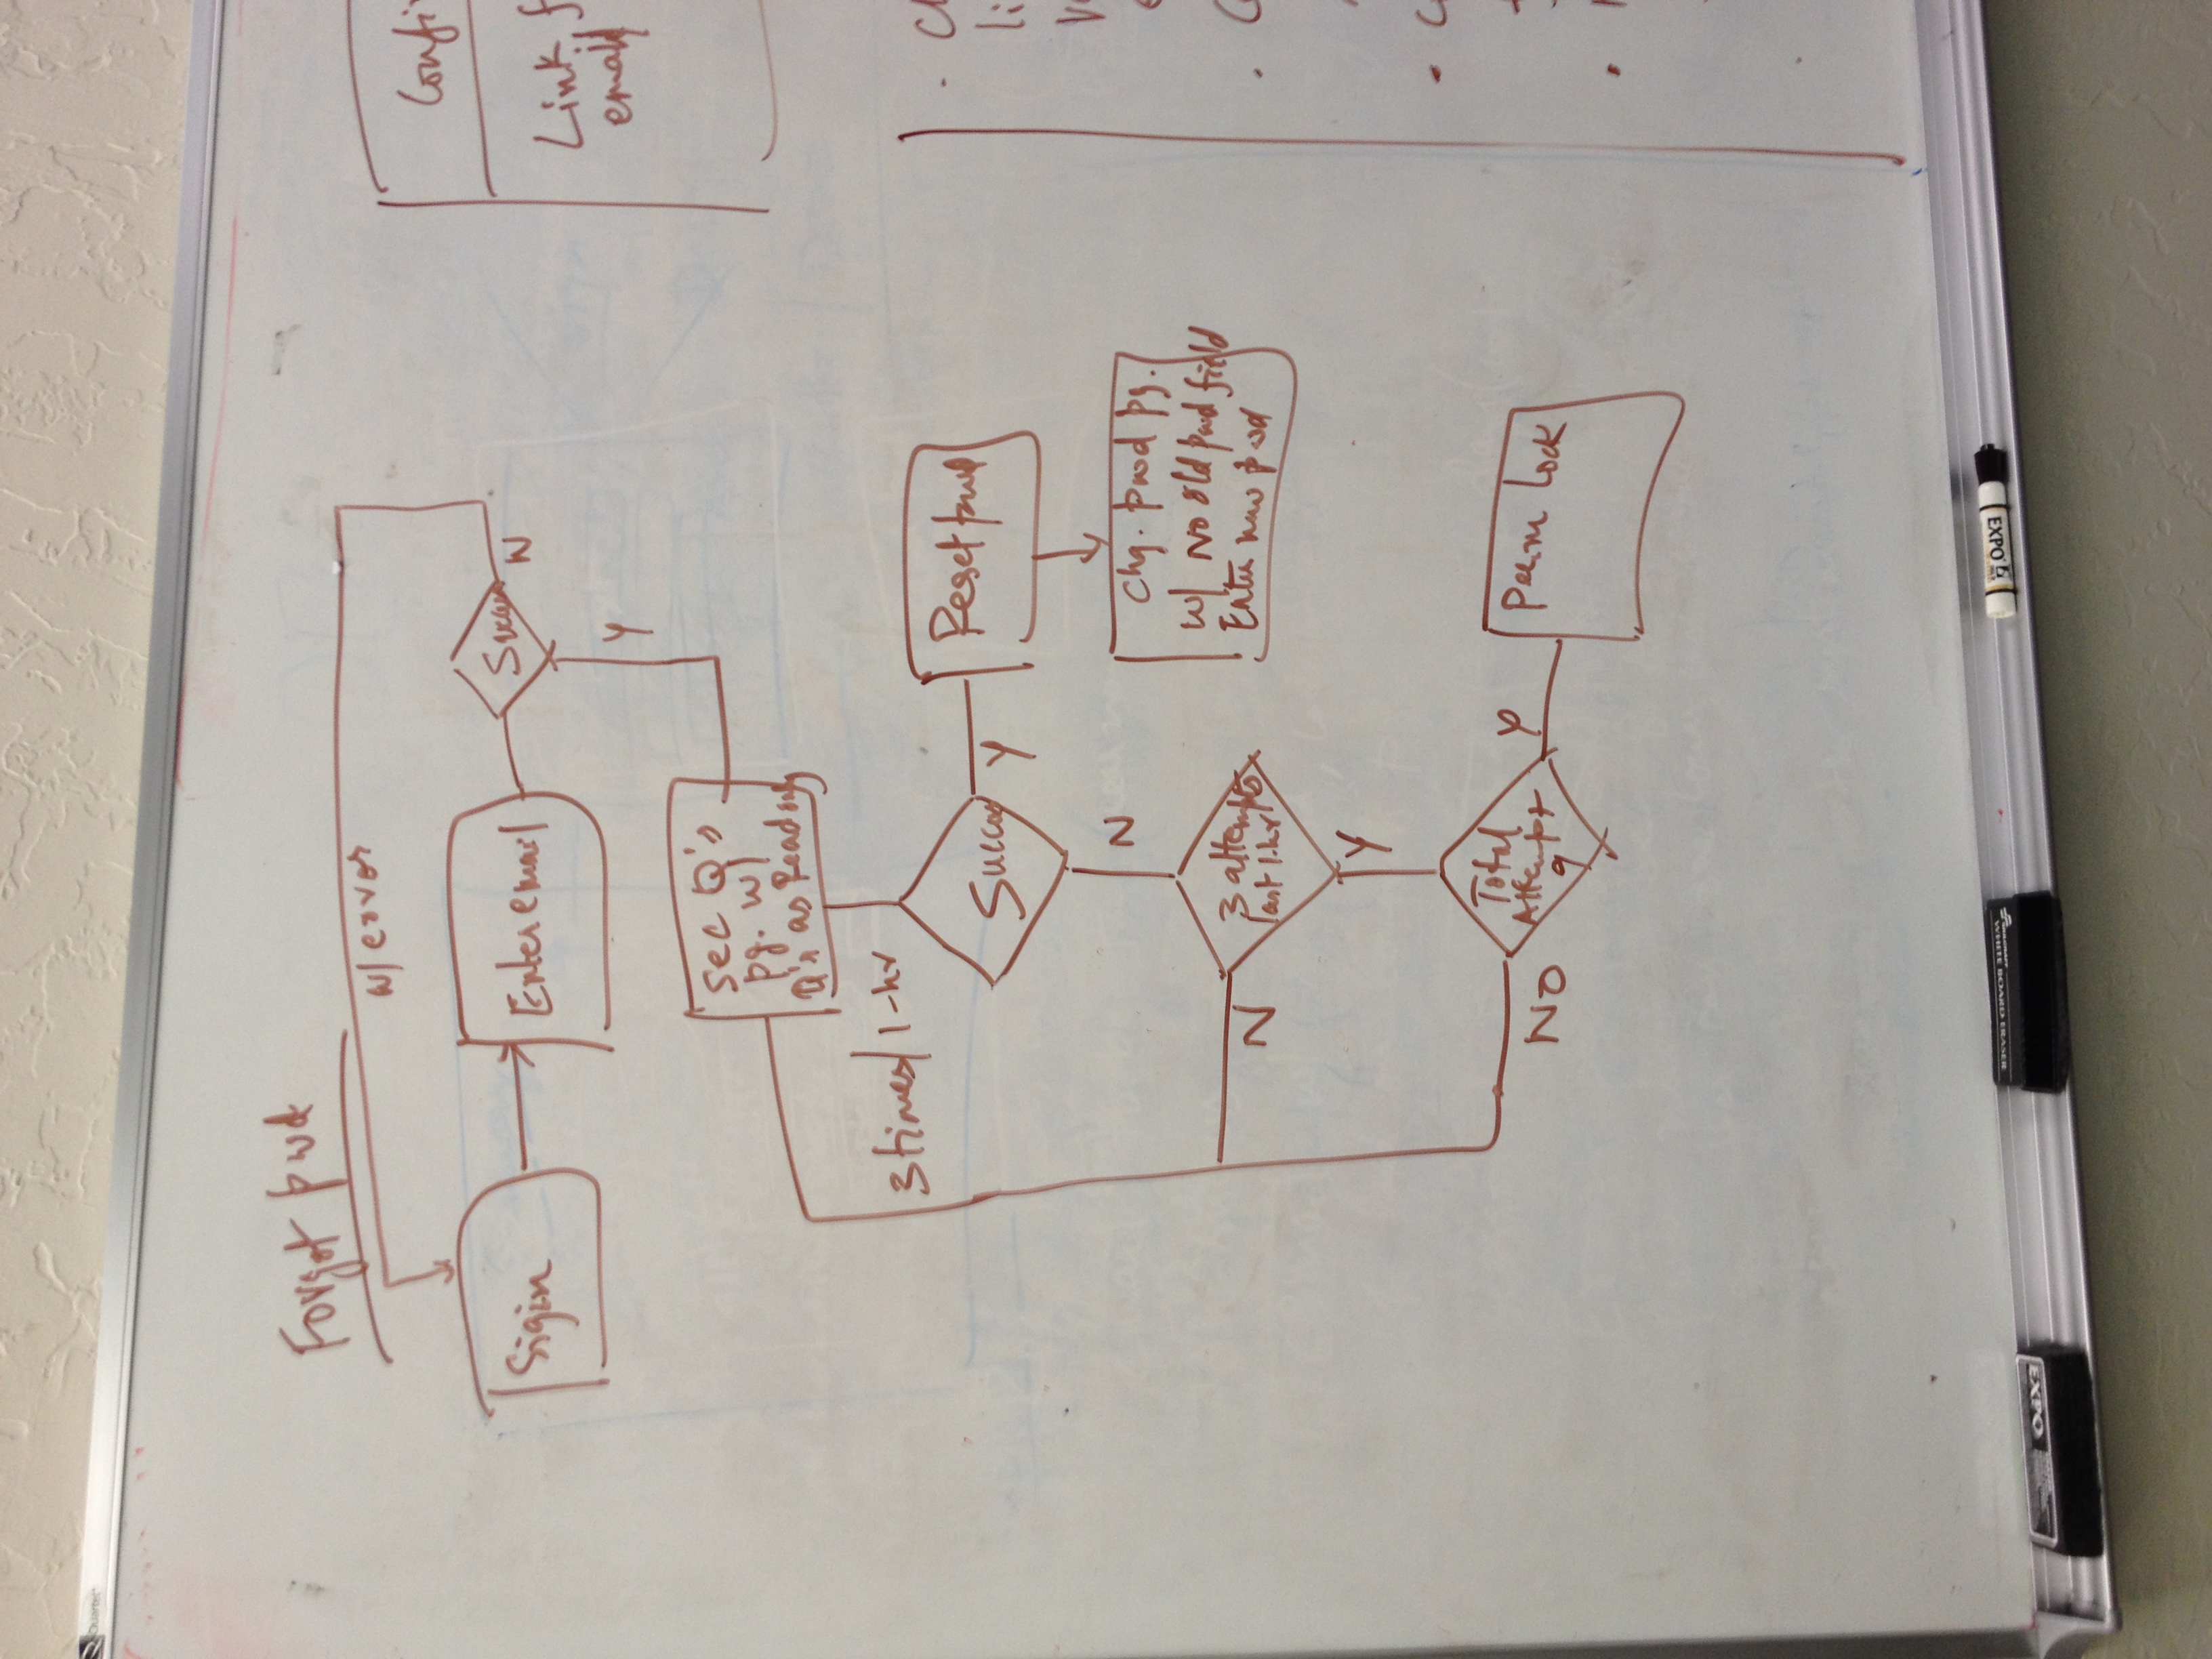 Quartet
Forgot pwd
w/ error
Sigin
Enter email
Success
N
Y
Sec Q's
pg. w/
Q's as Read only
3 times/ 1-hr
Success
Y
Reset pwd
N
Chg. pwd pg.
w/ No old pwd field
Enter new pwd
3 attempts
last 1-hr
N
Y
Total
Attempt
9
NO
Y
Perm Lock
Confi
Link f
email
EXPO
WHITE BOARD ERASER
EXPO